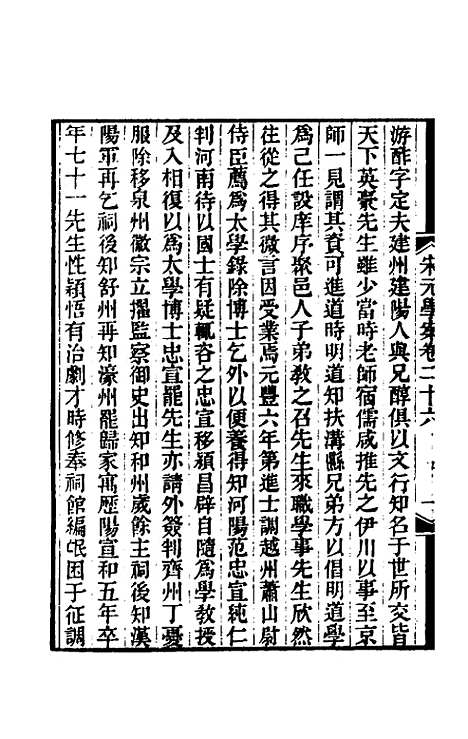 宋元學案卷二十六
游酢字定夫建州建陽人與兄醇俱以文行知名于世所交皆
天下英豪先生雖少當時老師宿儒咸推先之伊川以事至京
師一見謂其資可進道時明道知扶溝縣兄弟方以倡明道學
爲己任設庠序聚邑人子弟教之召先生來職學事先生欣然
往從之得其微言因受業焉元豐六年第進士調越州蕭山尉
侍臣薦爲太學錄除博士乞外以便養得知河陽范忠宣純仁
判河南待以國士有疑輒咨之忠宣移潁昌辟自隨爲學教授
及入相復以爲太學博士忠宣罷先生亦請外簽判齊州丁憂
服除移泉州徽宗立擢監察御史出知和州歲餘主祠後知漢
陽軍再乞祠後知舒州再知濠州罷歸家寓歷陽宣和五年卒
年七十一先生性穎悟有治劇才時修奉祠館編氓困于征調